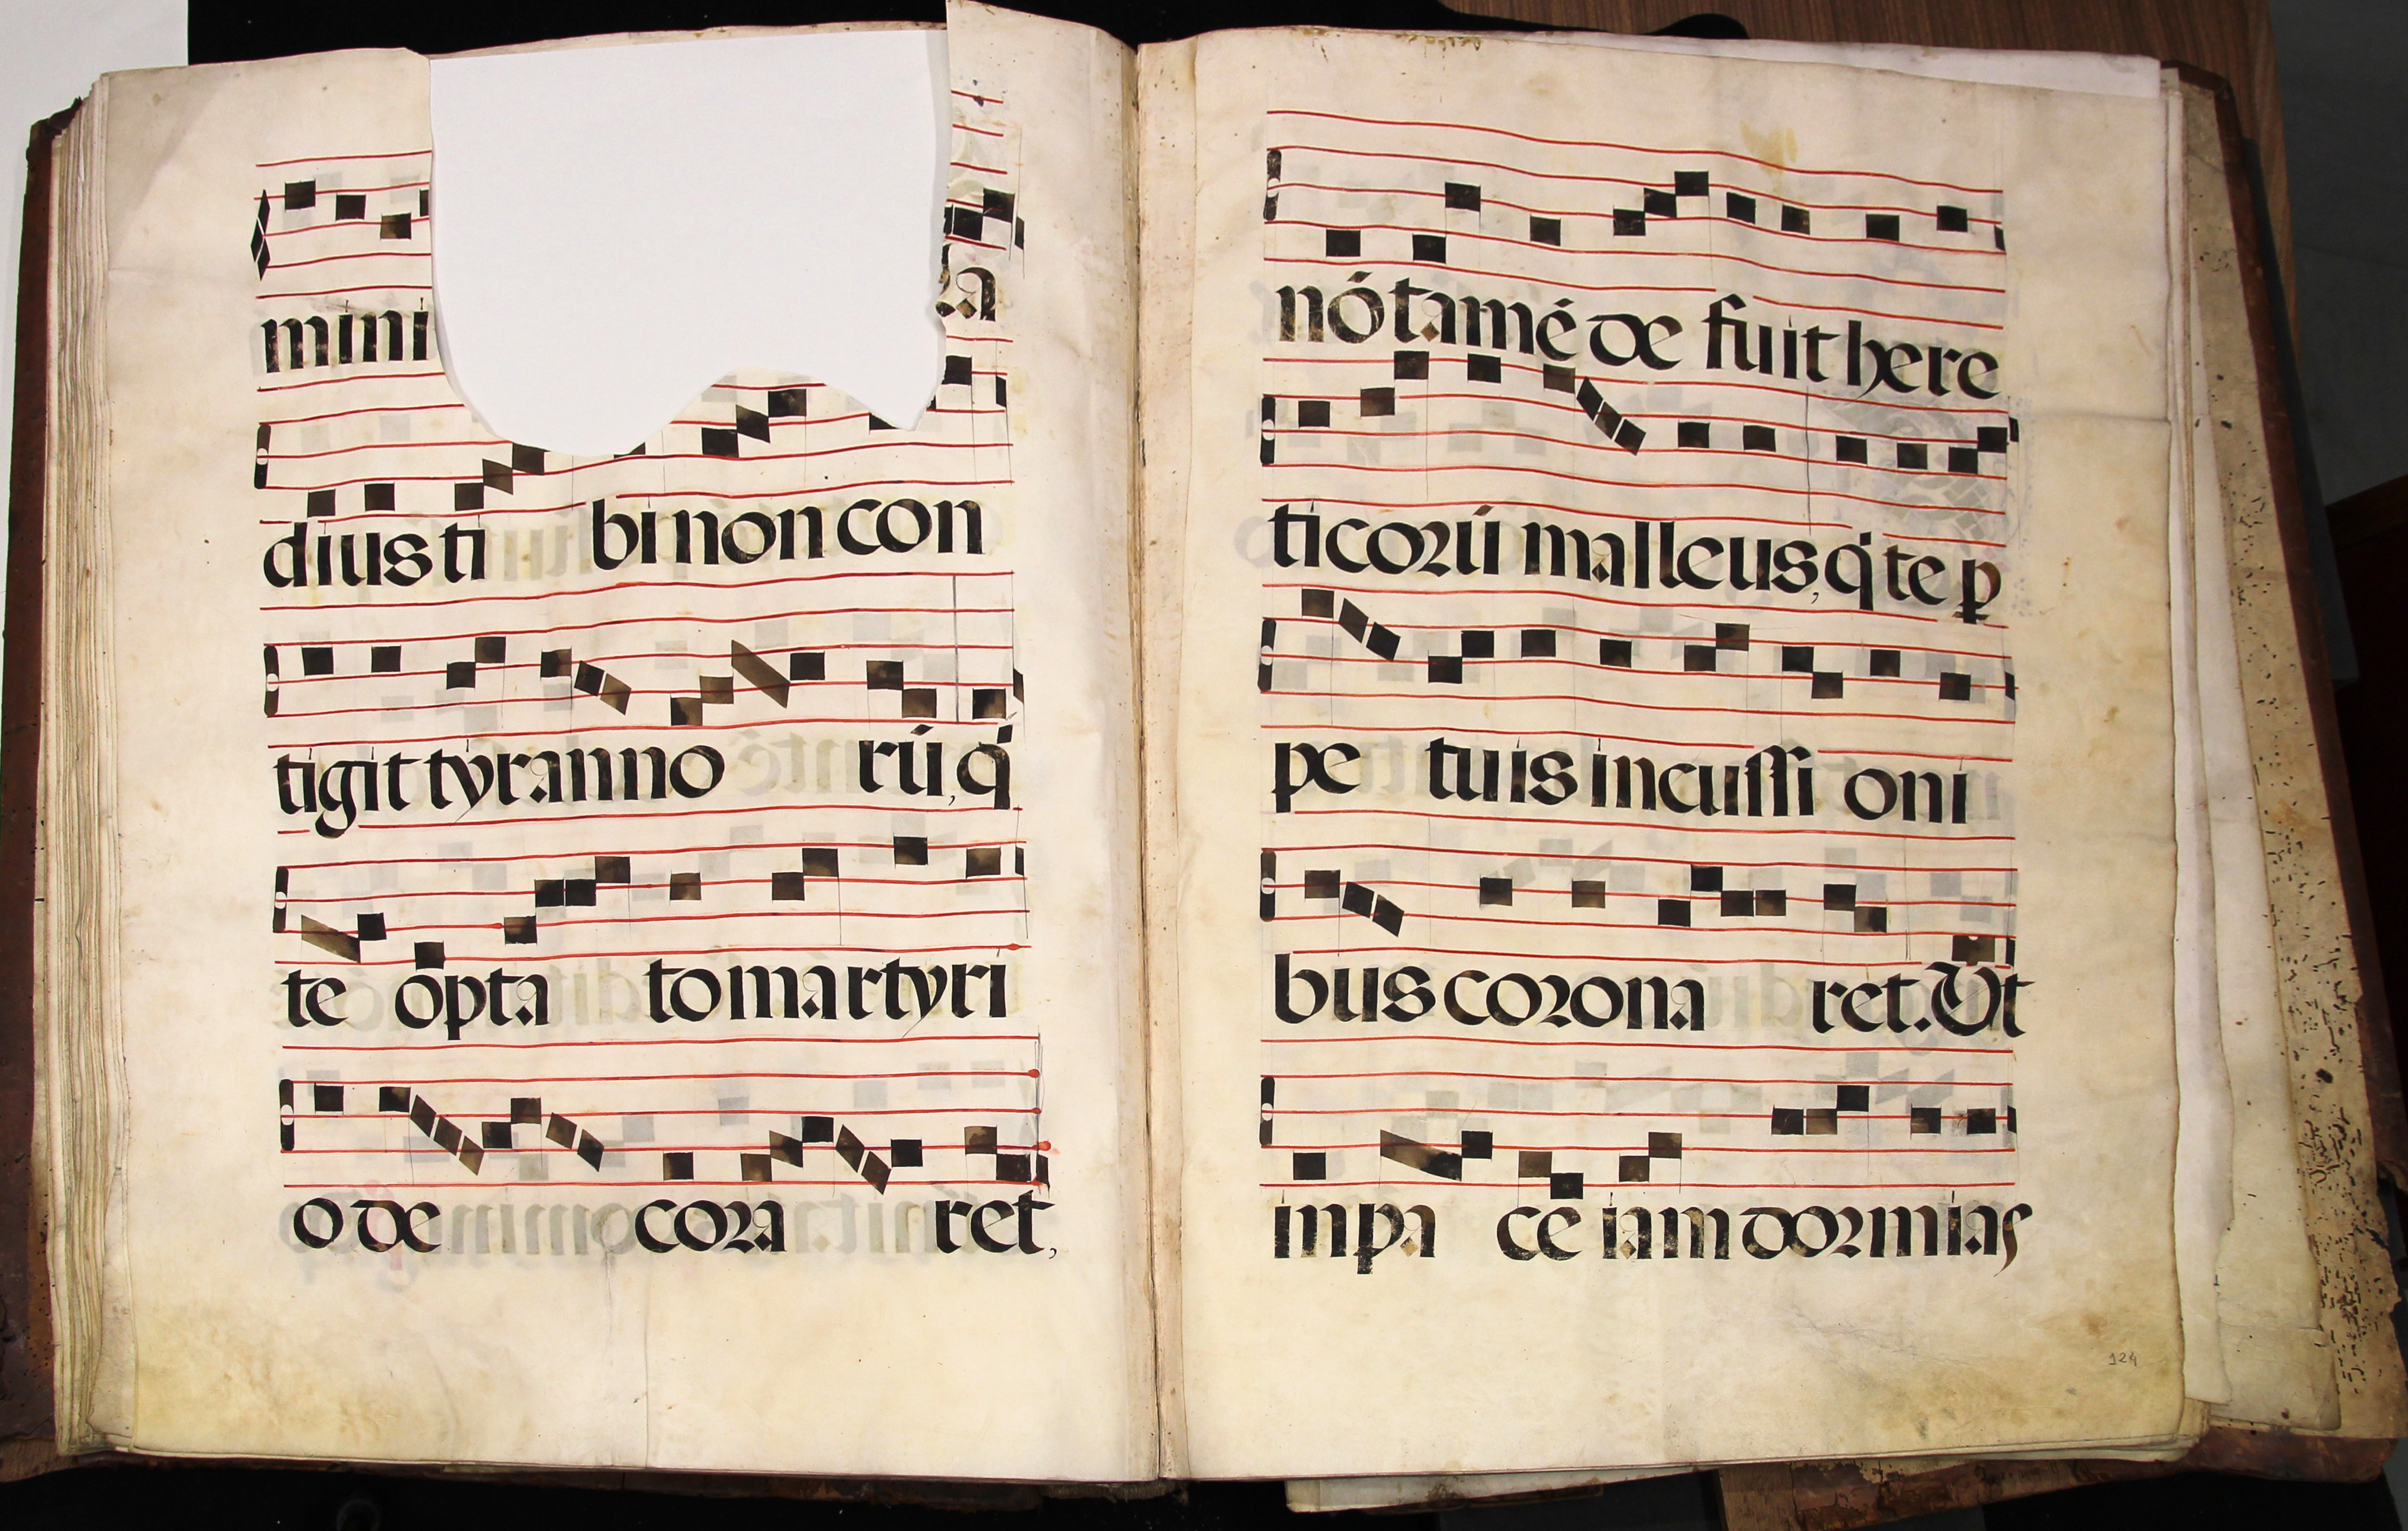 mini
diusti binoncon
tigit tyranno rú, q̇
te opta tomartyri
o de cora ret,
nó tamé de fuit here
ticorú malleus, q̇ te ꝑ
pe tuis incussi oni
bus corona ret. Ut
in pa ce iam dormias
124